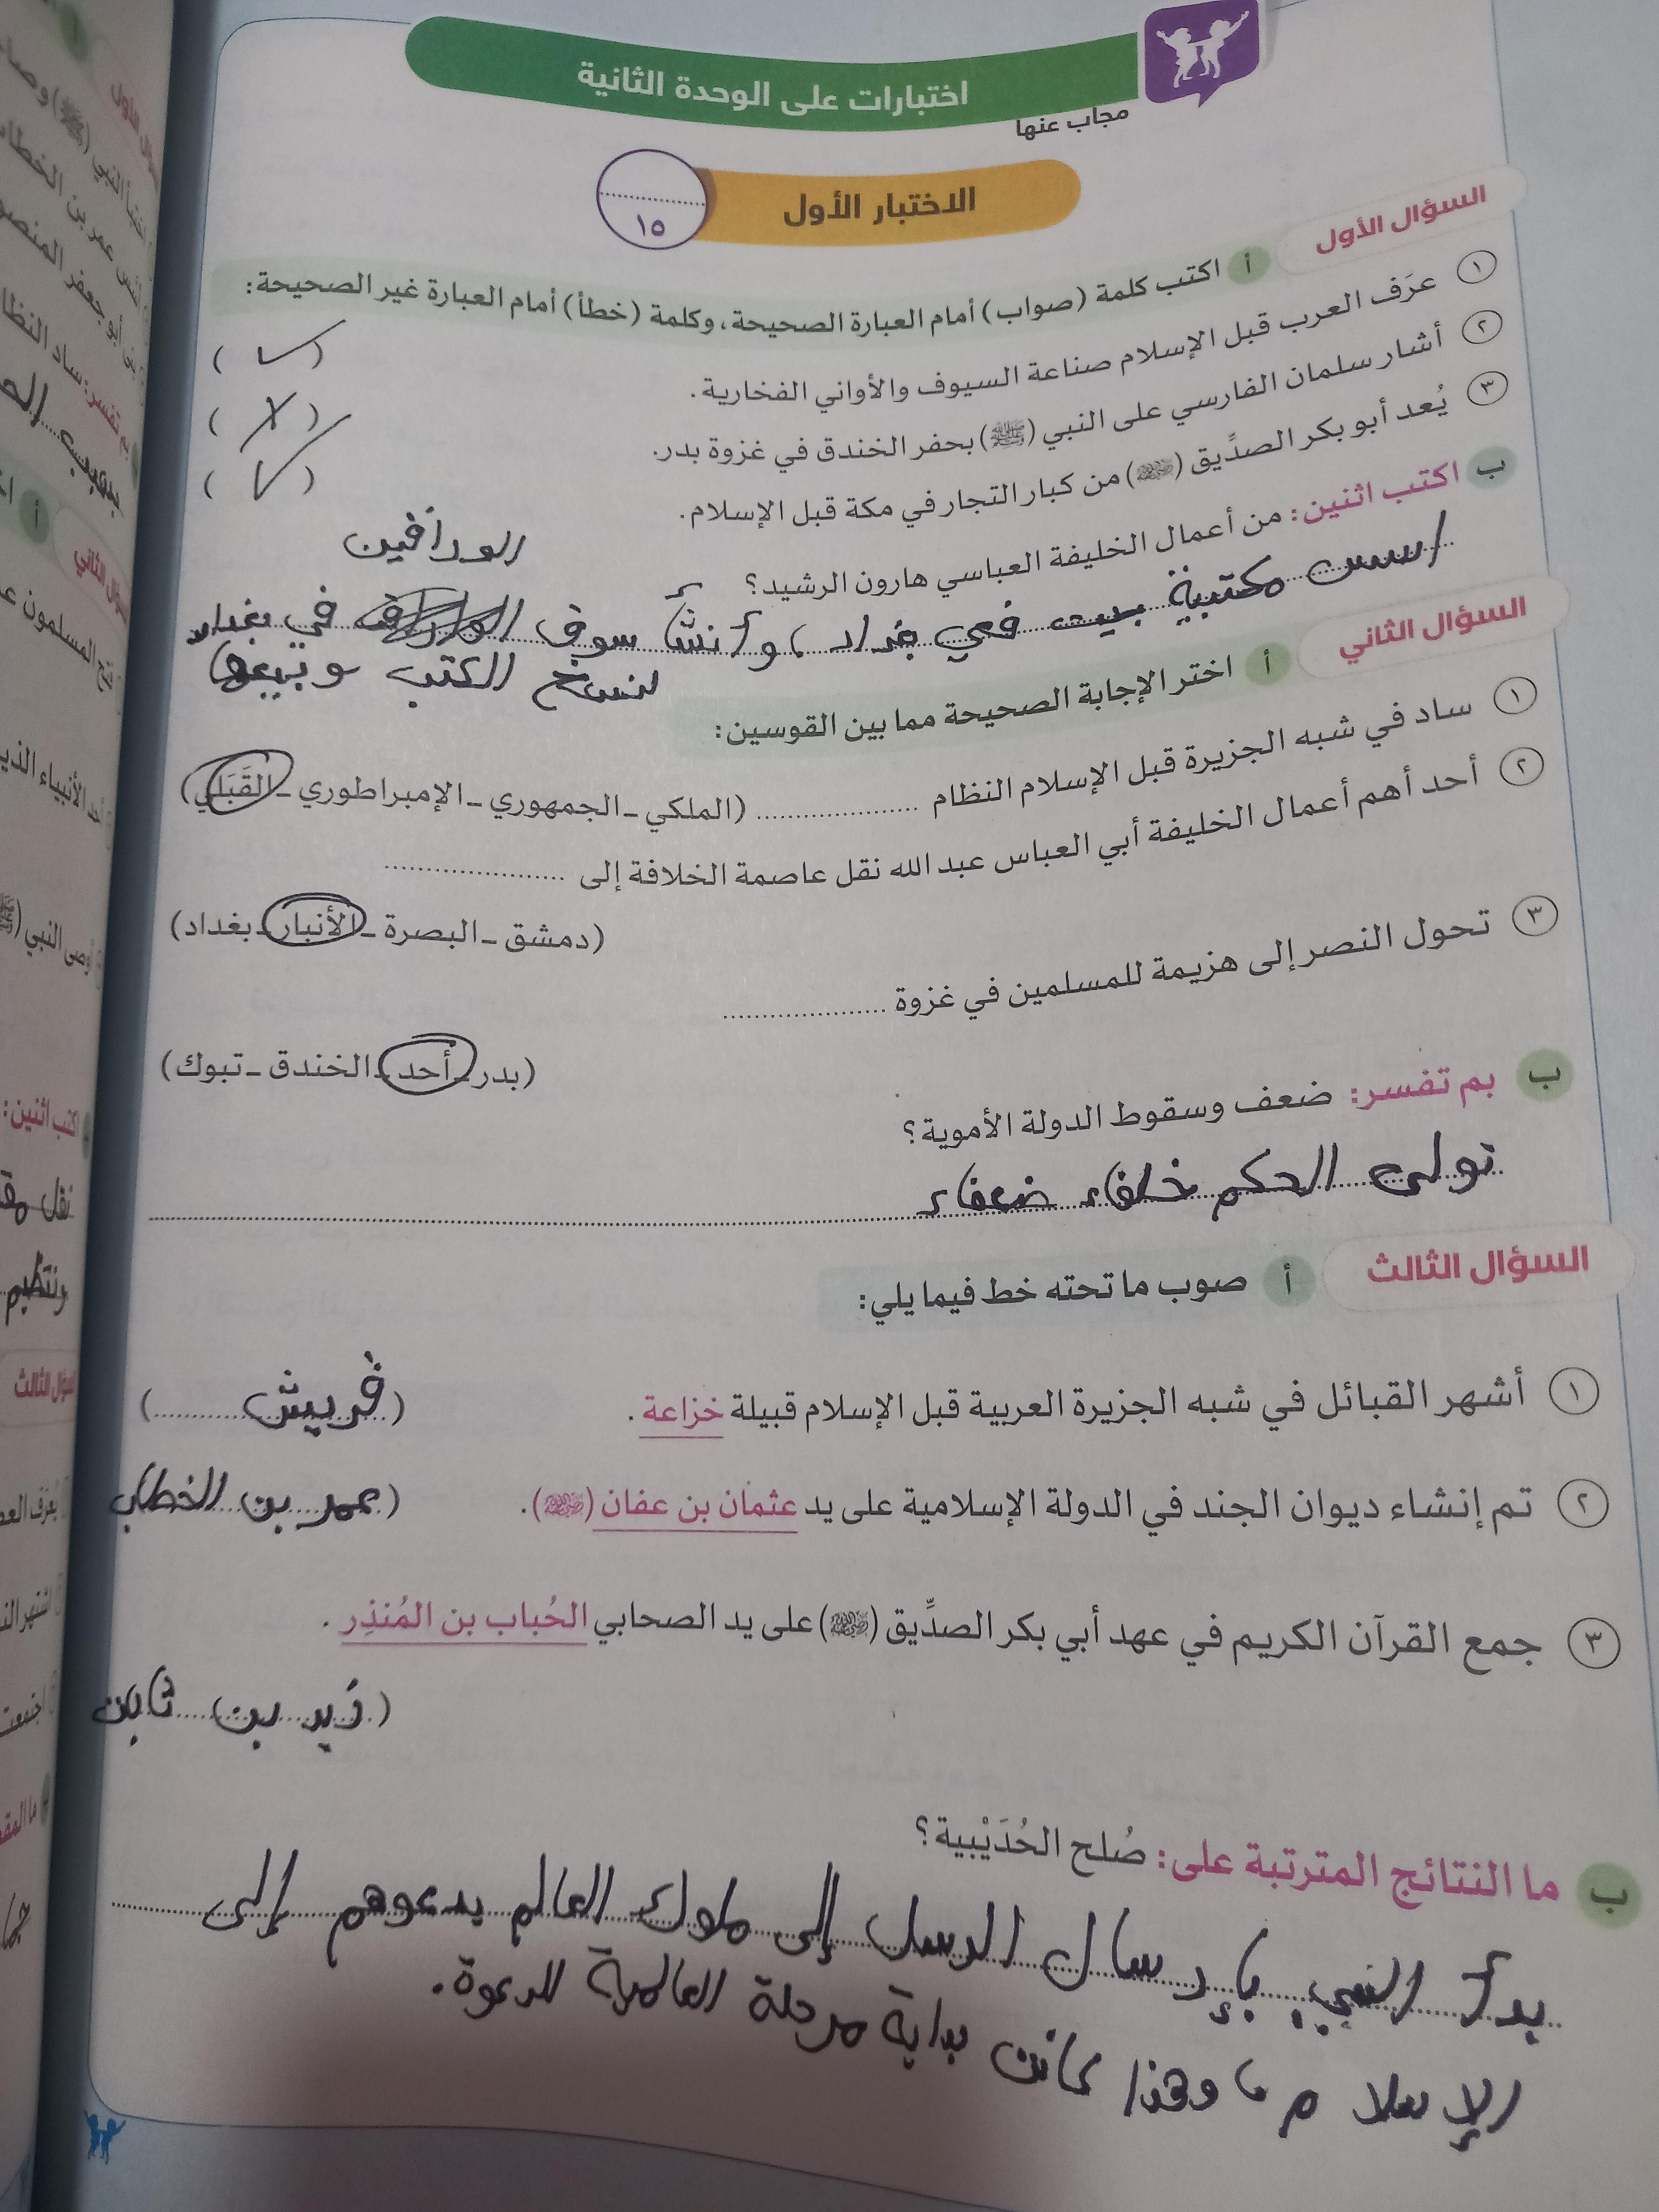 اختبارات على الوحدة الثانية
مجاب عنها
الاختبار الأول
١٥
السؤال الأول
أ اكتب كلمة (صواب) أمام العبارة الصحيحة، وكلمة (خطأ) أمام العبارة غير الصحيحة:
١ عرَف العرب قبل الإسلام صناعة السيوف والأواني الفخارية. (✓)
٢ أشار سلمان الفارسي على النبي (ﷺ) بحفر الخندق في غزوة بدر. (✗)
٣ يُعد أبو بكر الصدِّيق (رضي الله عنه) من كبار التجار في مكة قبل الإسلام. (✓)
ب اكتب اثنين: من أعمال الخليفة العباسي هارون الرشيد؟
الوراقين
اسس مكتبية بيت في بغداد، وأنشأ سوق في بغداد
لنسخ الكتب وبيعها
السؤال الثاني
أ اختر الإجابة الصحيحة مما بين القوسين:
١ ساد في شبه الجزيرة قبل الإسلام النظام .................... (الملكي – الجمهوري – الإمبراطوري – القَبَلي)
٢ أحد أهم أعمال الخليفة أبي العباس عبد الله نقل عاصمة الخلافة إلى ....................
(دمشق – البصرة – الأنبار – بغداد)
٣ تحول النصر إلى هزيمة للمسلمين في غزوة ....................
(بدر – أحد – الخندق – تبوك)
ب بم تفسر: ضعف وسقوط الدولة الأموية؟
تولى الحكم خلفاء ضعفاء
السؤال الثالث
أ صوب ما تحته خط فيما يلي:
١ أشهر القبائل في شبه الجزيرة العربية قبل الإسلام قبيلة خزاعة. (قريش)
٢ تم إنشاء ديوان الجند في الدولة الإسلامية على يد عثمان بن عفان (رضي الله عنه). (عمر بن الخطاب
٣ جمع القرآن الكريم في عهد أبي بكر الصدِّيق (رضي الله عنه) على يد الصحابي الحُباب بن المُنذِر.
(زيد بن ثابت
ب ما النتائج المترتبة على: صُلح الحُدَيْبية؟
بدأ النبي بإرسال الرسل إلى ملوك العالم يدعوهم إلى
الإسلام، وهذا كانت بداية مرحلة العالمية للدعوة.